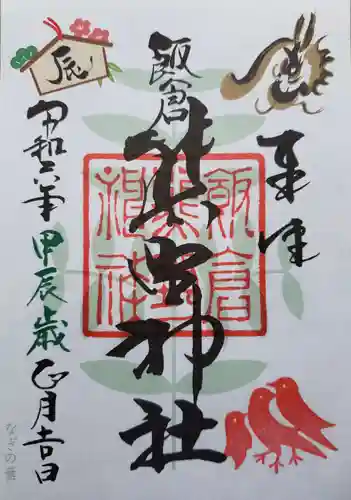 奉拝
飯倉
熊野神社
飯倉
熊野
神社
辰
令和六年
甲辰歳
正月吉日
なぎの葉